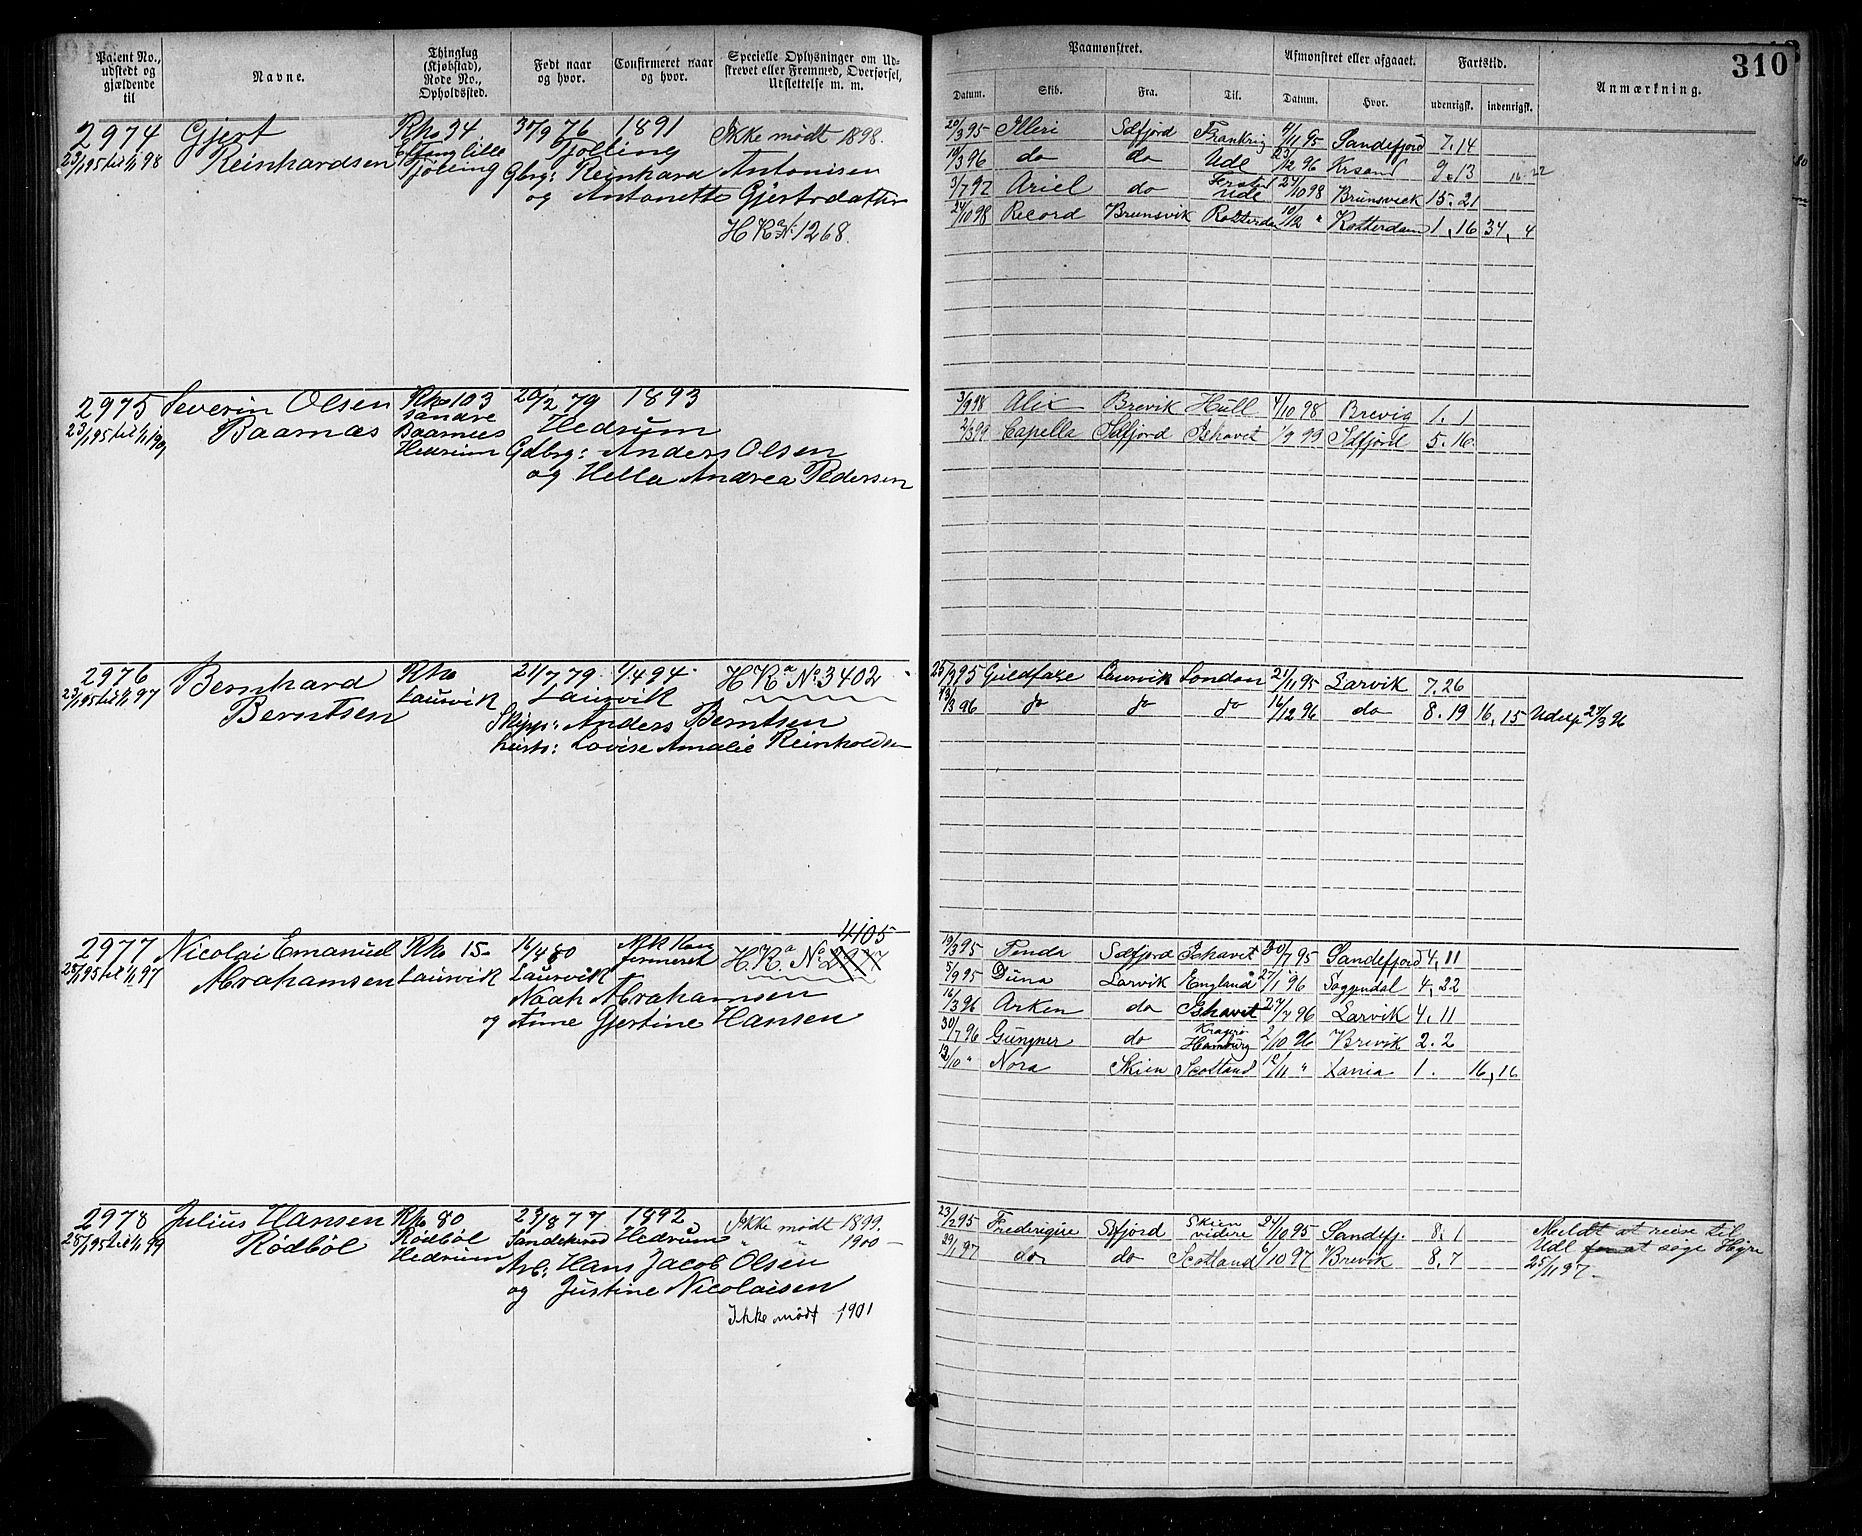 310
Patent No., udstedt og gjældende til
Navne.
Thinglag (Kjøbstad), Rode No., Opholdssted.
Født naar og hvor.
Confirmeret naar og hvor.
Specielle Oplysninger om Udskrevet eller Fremmed, Overførsel, Udslettelse m. m.
Paamønstret.
Afmønstret eller afgaaet.
Fartstid.
Anmærkning.
Datum. Skib. Fra. Til. Datum. Hvor. udenrigsk. indenrigsk.
2974 Gjert Rk. 34 30/9 76 1891 Ikke mødt 1898.
23/1 95 til 1/1 98 Reinhardsen Tjölling Tjölling
Gbrg: Reinhard Antonisen
og Antonette Gjertsdatter
H Ka No 1268.
20/3 95 Illeri Sdfjord Frankrig 4/11 95 Sandefjord 7.14
19/3 96 do do Udl 23/12 96 Krsand 9.13
3/7 97 Ariel do Udl 24/10 98 Brunsvick 15.21
24/10 98 Record Brunsvik Rotterdam 10/12 " Rotterdam 1,16 34, 4
2975 Severin Olsen Rk. 103 20/2 79 1893
23/1 95 til 1/1 1901 Baarnæs Søndre Hedrum
Baarnæs
Hedrum Gdbrg: Anders Olsen
og Hella Andrea Pedersen
3/9 98 Alix Brevik Hull 4/10 98 Brevig 1.1
2/3 99 Capella Sdfjord Ishavet 1/9 99 Sdfjord 5.16.
2976 Bernhard Rk. 21/7 79 1/4 94 H Ka No 3402
23/1 95 til 1/1 97 Berntsen Laurvik Laurvik
Skipp: Anders Berntsen
Lovise Amalie Reinholdsen
25/3 95 Guldfaxe Laurvik London 21/11 95 Larvik 7.26
13/3 96 do do do 16/12 96 do 8.19 16,15 Udelp 28/3 96
2977 Nicolai Emanuel Rk. 15 16/4 80 Ikke Kon- H. Ka. No 2977 4105
25/1 95 til 1/1 97 Abrahamsen Laurvik Laurvik firmeret
Noah Abrahamsen
og Anne Gjertine Hansen
19/3 95 Fenda Sdfjord Ishavet 30/7 95 Sandefjord 4,11
5/9 95 Duna Larvik England 27/1 96 Soggendal 4,22
16/3 96 Arken do Ishavet 24/7 96 Larvik 4.11
30/7 96 Gungner do Kragerø Hamburg 2/10 96 Brevik 2.2
12/10 " Nora Skien Scotland 12/11 " Xania 1. 16,16
2978 Julius Hansen Rk. 80 29/8 77 1892 Ikke mødt 1899.
25/1 95 til 1/1 99 Rödböl Rödböl Hedrum " " 1900
Hedrum Arb: Hans Jacob Olsen
og Justine Nicolaisen
Ikke mödt 1901
23/2 95 Frederique Sdfjord Skien videre 24/10 95 Sandefj. 8.1 Meldt at reise til
29/1 97 do do Scotland 6/10 97 Brevik 8.7 Udl for at søge Hyre
25/11 97.